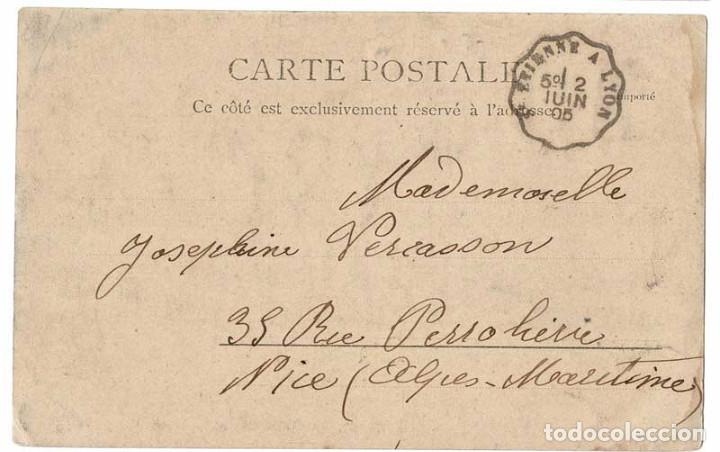 CARTE POSTALE
Ce côté est exclusivement réservé à l'adresse
importé
St ETIENNE A LYON
5º 2
JUIN
05
Mademoselle
Josephine Vercasson
35 Rue
Nice (Alpes-Maritime)
todocoleccion